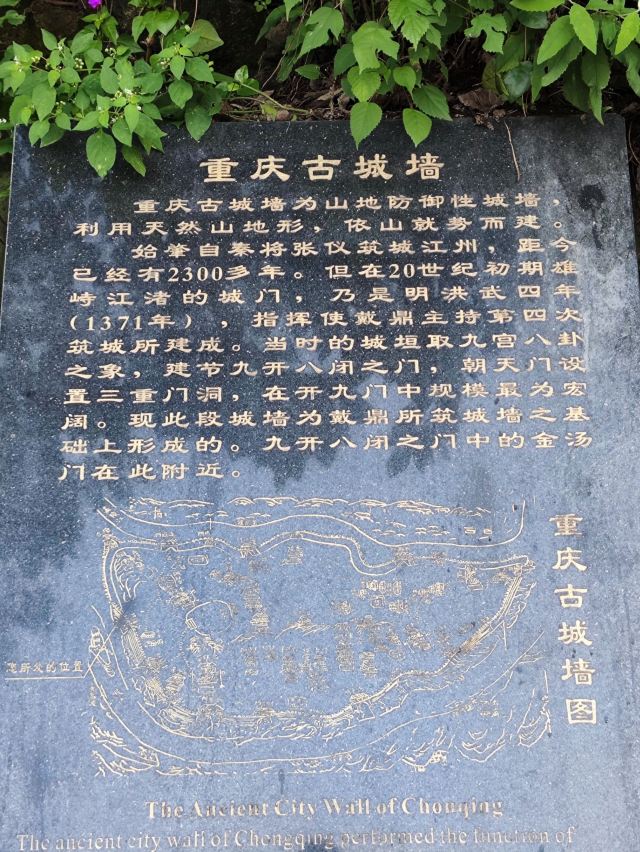 重庆古城墙
重庆古城墙为山地防御性城墙，
利用天然山地形，依山就势而建。
始肇自秦将张仪筑城江州，距今
已经有2300多年。但在20世纪初期雄
峙江渚的城门，乃是明洪武四年
（1371年），指挥使戴鼎主持第四次
筑城所建成。当时的城垣取九宫八卦
之象，建节九开八闭之门，朝天门设
置三重门洞，在开九门中规模最为宏
阔。现此段城墙为戴鼎所筑城墙之基
础上形成的。九开八闭之门中的金汤
门在此附近。
重庆古城墙图
所处的位置
The Ancient City Wall of Chonqing
The ancient city wall of Chengqing performed the function of